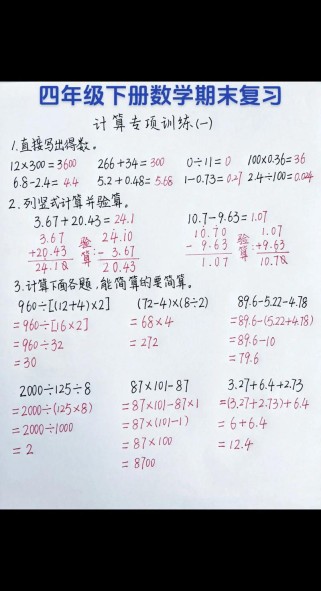 四年级下册数学期末复习
计算专项训练(一)
1.直接写出得数。
12×300=3600 266+34=300 0÷11=0 100×0.36=36
6.8-2.4=4.4 5.2+0.48=5.68 1-0.73=0.27 2.4÷100=0.024
2.列竖式计算并验算。
3.67+20.43=24.1 10.7-9.63=1.07
3.67 验算: 24.10 10.70 验算: 1.07
+20.43 - 3.67 - 9.63 +9.63
24.10 20.43 1.07 10.70
3.计算下面各题,能简算的要简算。
960÷[(12+4)×2] (72-4)×(8÷2) 89.6-5.22-4.78
=960÷[16×2] =68×4 =89.6-(5.22+4.78)
=960÷32 =272 =89.6-10
=30 =79.6
2000÷125÷8 87×101-87 3.27+6.4+2.73
=2000÷(125×8) =87×101-87×1 =(3.27+2.73)+6.4
=2000÷1000 =87×(101-1) =6+6.4
=2 =87×100 =12.4
=8700